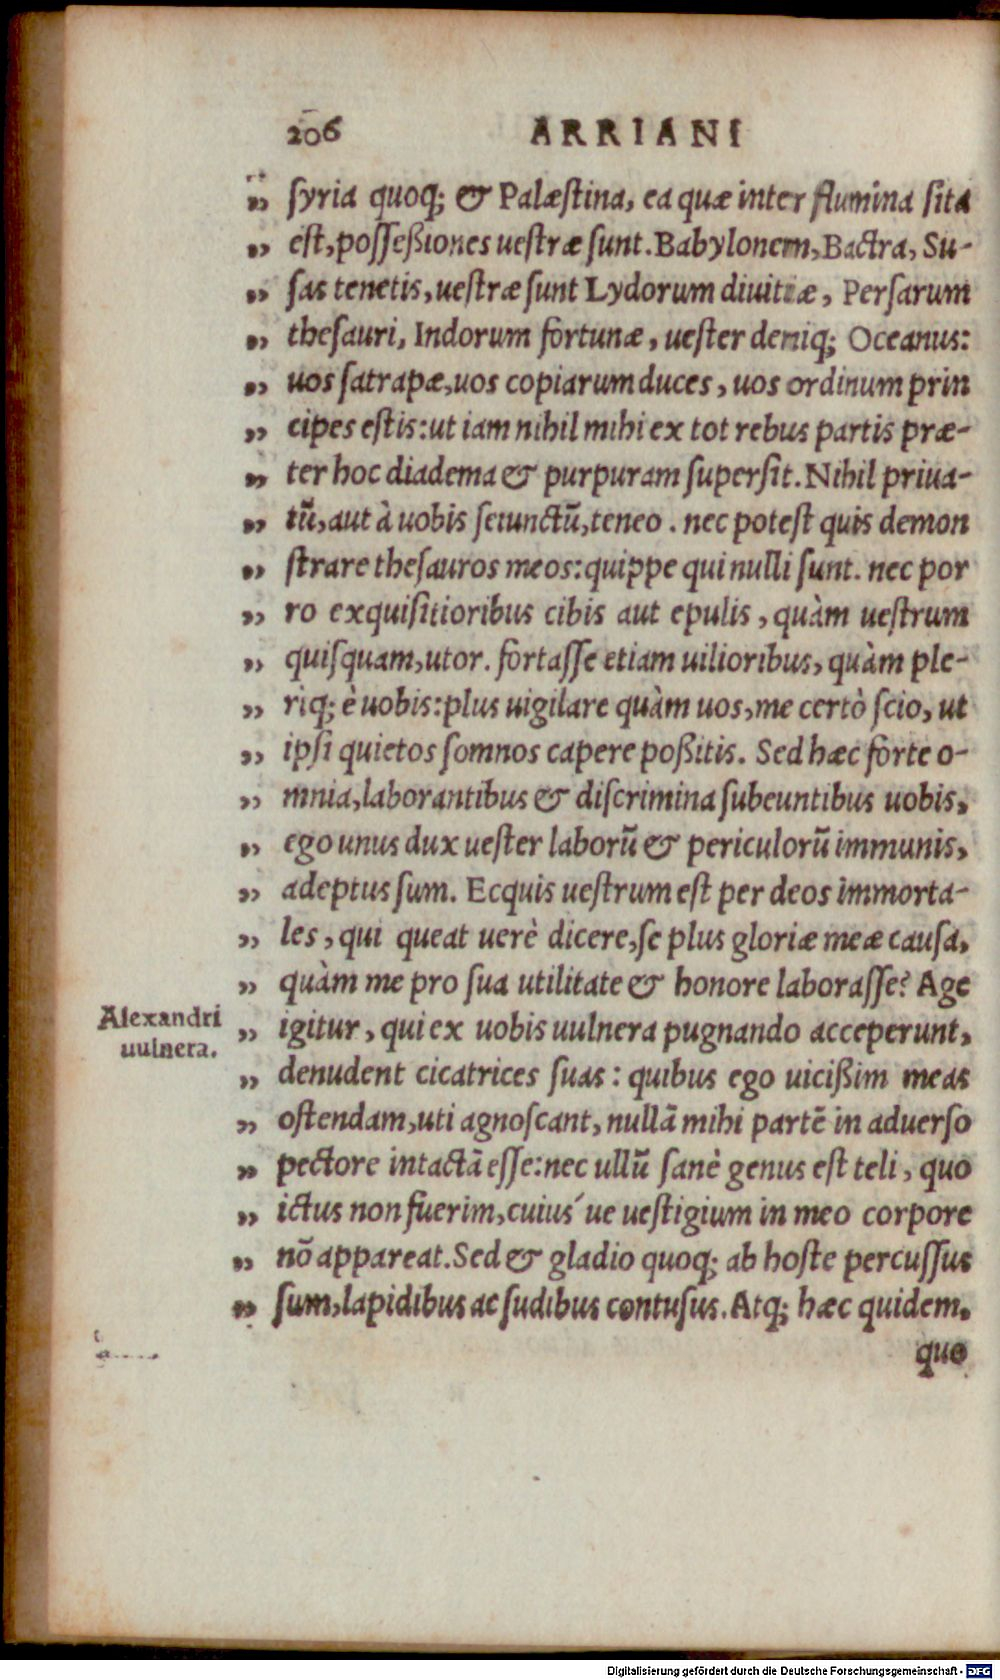 206 ARRIANI
„ ſyria quoq; & Palæſtina, ea quæ inter flumina ſita
„ eſt, poſſeßiones ueſtræ ſunt. Babylonem, Bactra, Su-
„ ſas tenetis, ueſtræ ſunt Lydorum diuitiæ, Perſarum
„ theſauri, Indorum fortunæ, ueſter deniq; Oceanus:
„ uos ſatrapæ, uos copiarum duces, uos ordinum prin
„ cipes eſtis: ut iam nihil mihi ex tot rebus partis præ-
„ ter hoc diadema & purpuram ſuperſit. Nihil priua-
„ tũ, aut à uobis ſeiunctũ, teneo. nec poteſt quis demon
„ ſtrare theſauros meos: quippe qui nulli ſunt. nec por
„ ro exquiſitioribus cibis aut epulis, quàm ueſtrum
„ quiſquam, utor. fortaſſe etiam uilioribus, quàm ple-
„ riq; è uobis: plus uigilare quàm uos, me certò ſcio, ut
„ ipſi quietos ſomnos capere poßitis. Sed hæc forte o-
„ mnia, laborantibus & diſcrimina ſubeuntibus uobis,
„ ego unus dux ueſter laborũ & periculorũ immunis,
„ adeptus ſum. Ecquis ueſtrum eſt per deos immorta-
„ les, qui queat uerè dicere, ſe plus gloriæ meæ cauſa,
„ quàm me pro ſua utilitate & honore laboraſſe? Age
Alexandri uulnera.
„ igitur, qui ex uobis uulnera pugnando acceperunt,
„ denudent cicatrices ſuas: quibus ego uicißim meas
„ oſtendam, uti agnoſcant, nullã mihi partẽ in aduerſo
„ pectore intactã eſſe: nec ullũ ſanè genus eſt teli, quo
„ ictus non fuerim, cuius´ue ueſtigium in meo corpore
„ nõ appareat. Sed & gladio quoq; ab hoſte percuſſus
„ ſum, lapidibus ac ſudibus contuſus. Atq; hæc quidem,
quo
Digitalisierung gefördert durch die Deutsche Forschungsgemeinschaft - DFG